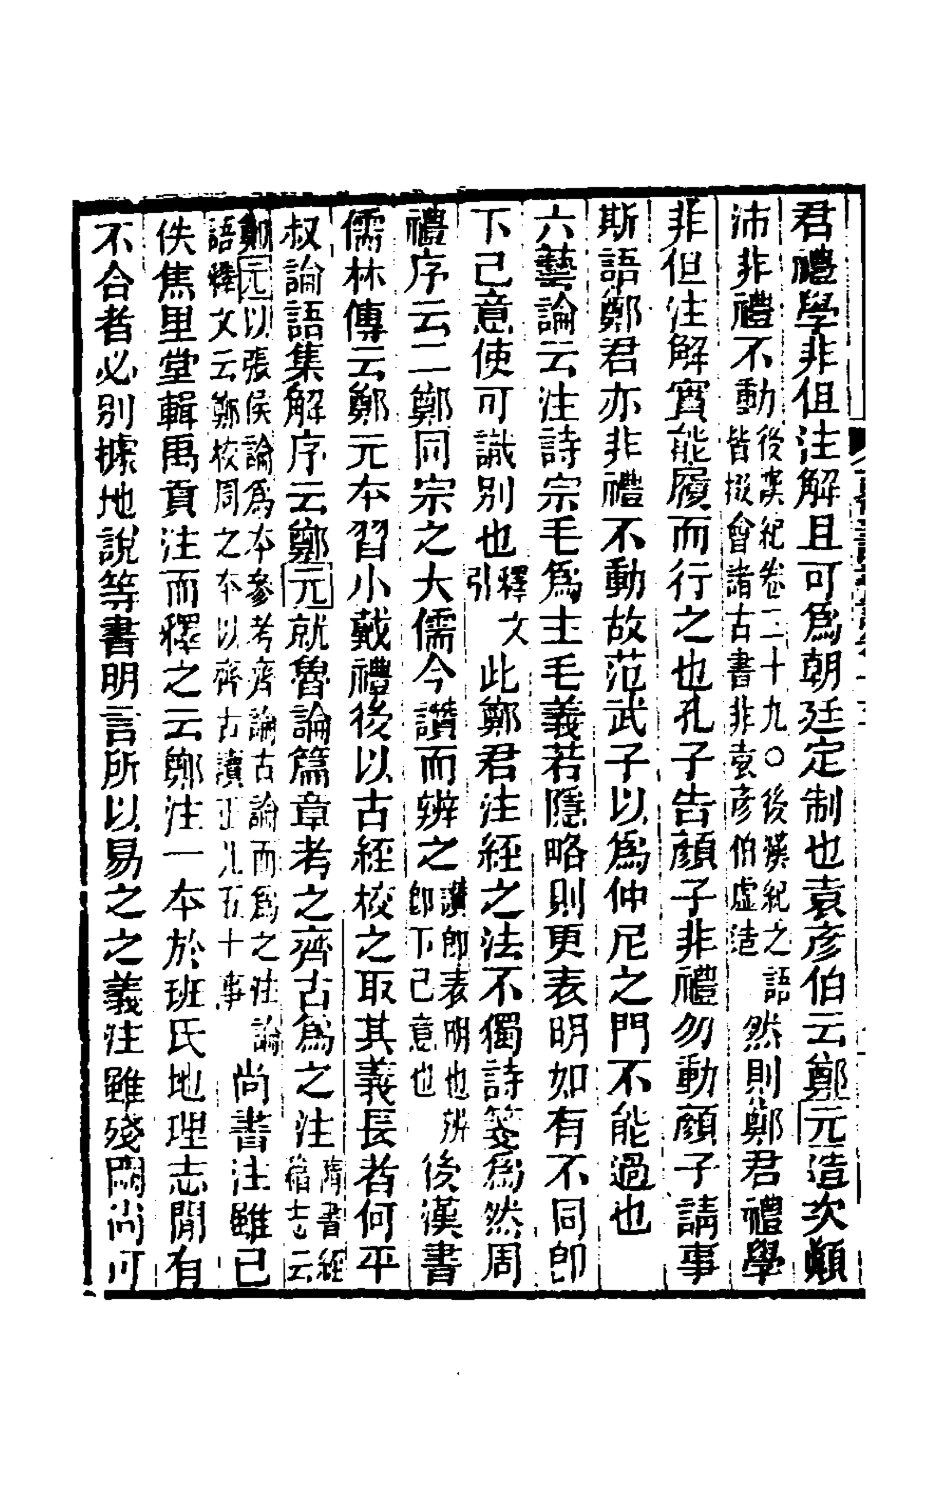 君禮學非但注解且可爲朝廷定制也袁彥伯云鄭元造次顚
沛非禮不動後漢紀卷二十九〇後漢紀之語皆掇會諸古書非袁彥伯虛造然則鄭君禮學
非但注解實能履而行之也孔子告顏子非禮勿動顏子請事
斯語鄭君亦非禮不動故范武子以爲仲尼之門不能過也
六藝論云注詩宗毛爲主毛義若隱略則更表明如有不同卽
下己意使可識別也釋文引此鄭君注經之法不獨詩箋爲然周
禮序云二鄭同宗之大儒今讚而辨之讚卽表明也辨卽下己意也後漢書
儒林傳云鄭元本習小戴禮後以古經校之取其義長者何平
叔論語集解序云鄭元就魯論篇章考之齊古爲之注隋書經籍志云
鄭元以張侯論爲本參考齊論古論而爲之注論語釋文云鄭校周之本以齊古讀正凡五十事尚書注雖已
佚焦里堂輯禹貢注而釋之云鄭注一本於班氏地理志閒有
不合者必別據地說等書明言所以易之之義注雖殘闕尚可